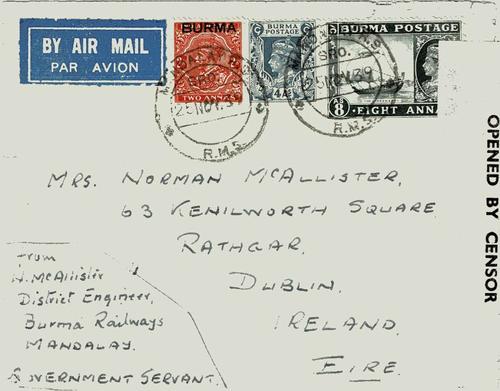 BY AIR MAIL
PAR AVION
BURMA
TWO ANNAS
BURMA
POSTAGE
4 As
BURMA POSTAGE
As 8
EIGHT ANN
SRO.
25 NOV 39
R.M.S.
SRO.
25 NOV 39
R.M.S.
OPENED BY CENSOR
MRS. NORMAN MCALLISTER,
63 KENILWORTH SQUARE
RATHGAR,
DUBLIN.
IRELAND.
EIRE.
From
N. McAllister
District Engineer,
Burma Railways
MANDALAY.
GOVERNMENT SERVANT.